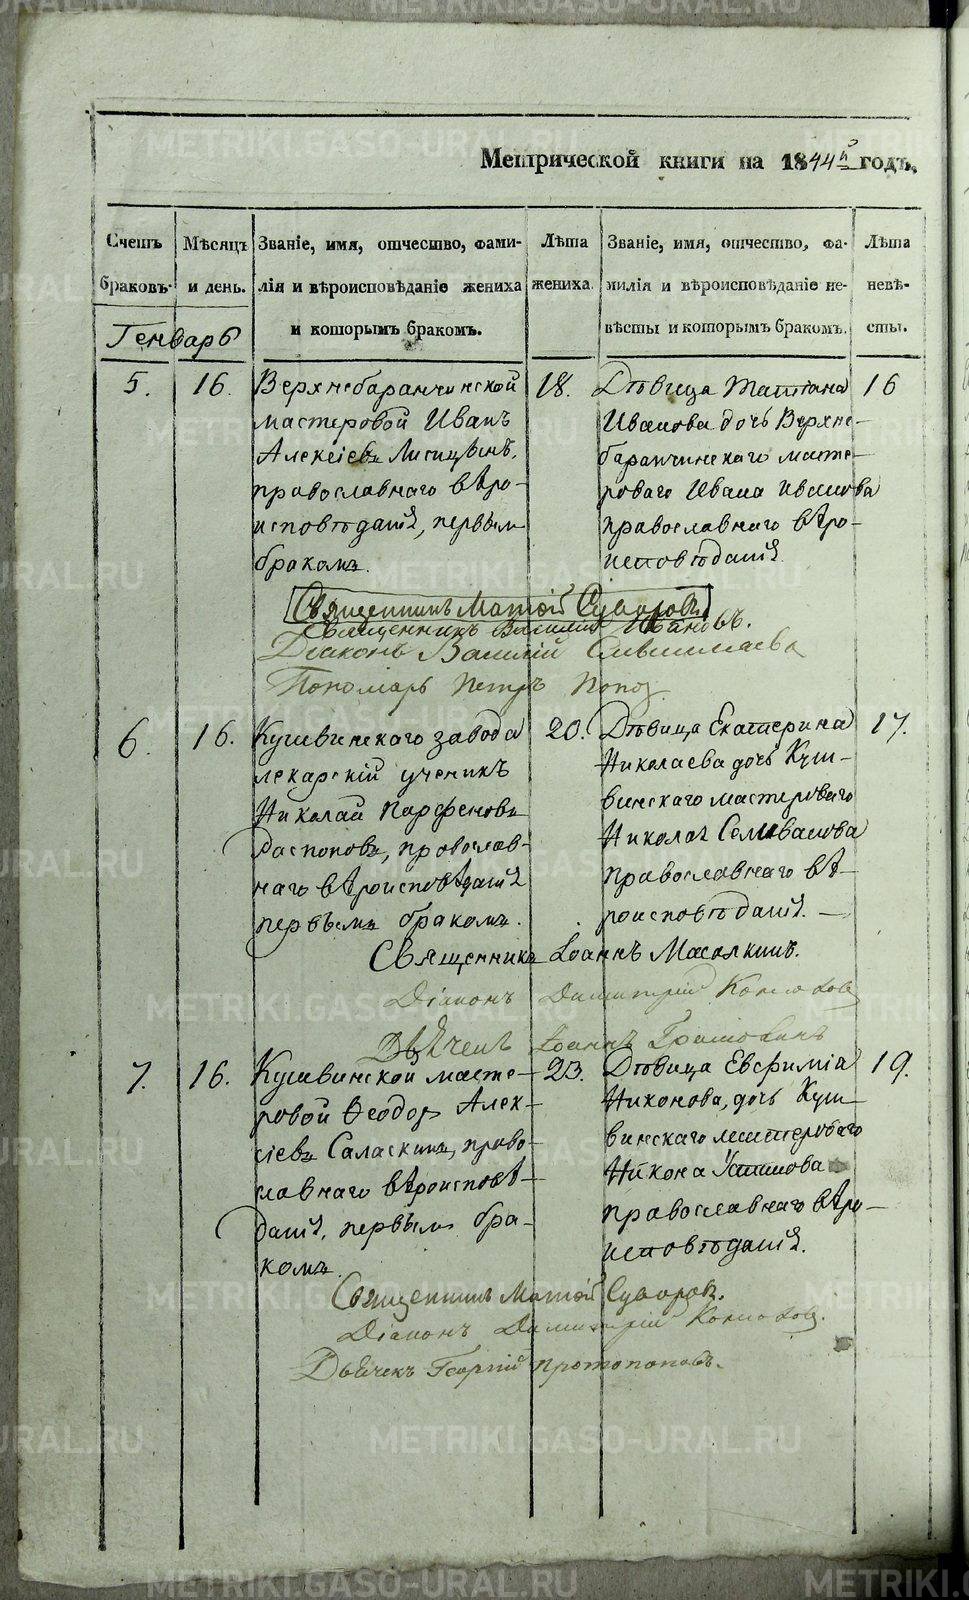 Метрической книги на 1844й годъ.
Счетъ браковъ.
Мѣсяцъ и день.
Званіе, имя, отчество, фами-
лія и вѣроисповѣданіе жениха
и которымъ бракомъ.
Лѣта жениха.
Званіе, имя, отчество, фа-
милія и вѣроисповѣданіе не-
вѣсты и которымъ бракомъ.
Лѣта невѣ-
сты.
Генварь
5.
16.
Верхнебаранчинской
мастеровой Иванъ
Алексѣевъ Лисицынъ,
православнаго вѣро-
исповѣданія, первымъ
бракомъ.
18.
Дѣвица Татіана
Иванова дочь Верхне-
баранчинскаго масте-
роваго Ивана Иванова
православнаго вѣро-
исповѣданія.
16
Священникъ Матѳій Суворовъ
Священникъ Василій Ивановъ.
Діаконъ Василій
Пономарь Петръ Попов
6.
16.
Кушвинскаго завода
лекарскій ученикъ
Николай Парфеновъ
Распоповъ, православ-
наго вѣроисповѣданія
первымъ бракомъ.
20.
Дѣвица Екатерина
Николаева дочь Куш-
винскаго мастероваго
Николая Селиванова
православнаго вѣ-
роисповѣданія.
17.
Священникъ Іоаннъ Масалкинъ.
Діаконъ Димитрій
Дьячекъ Іоаннъ
7.
16.
Кушвинской масте-
ровой Ѳеодоръ Алек-
сіевъ Саласкинъ, право-
славнаго вѣроисповѣ-
данія, первымъ бра-
комъ.
23.
Дѣвица Евфимія
Никонова, дочь Куш-
винскаго мастероваго
Никона Устинова
православнаго вѣро-
исповѣданія.
19.
Священникъ Матѳій Суворовъ.
Діаконъ Димитрій
Дьячекъ Георгій Протопоповъ.
METRIKI.GASO-URAL.RU